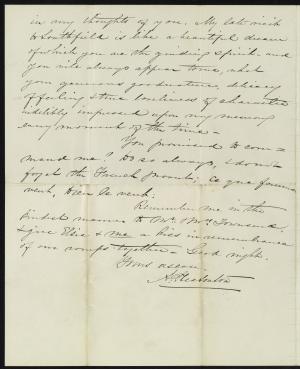 in my thoughts of you. My late visit
to Southfield is like a beautiful dream
of which you are the guiding spirit and
you will always appear to me, what
your generous good nature, delicacy
of feeling & true loveliness of character
indelibly impressed upon my memory
every moment of the time —
You promised to com-
mand me! Do so always, & don't
forget the French proverb, ce que femme
veut, Dieu le veut.
Remember me in the
kindest manner to Mr. & Mrs. Townsend
& give Elsie & me a kiss in remembrance
of our romps together — Good night.
Yours as ever